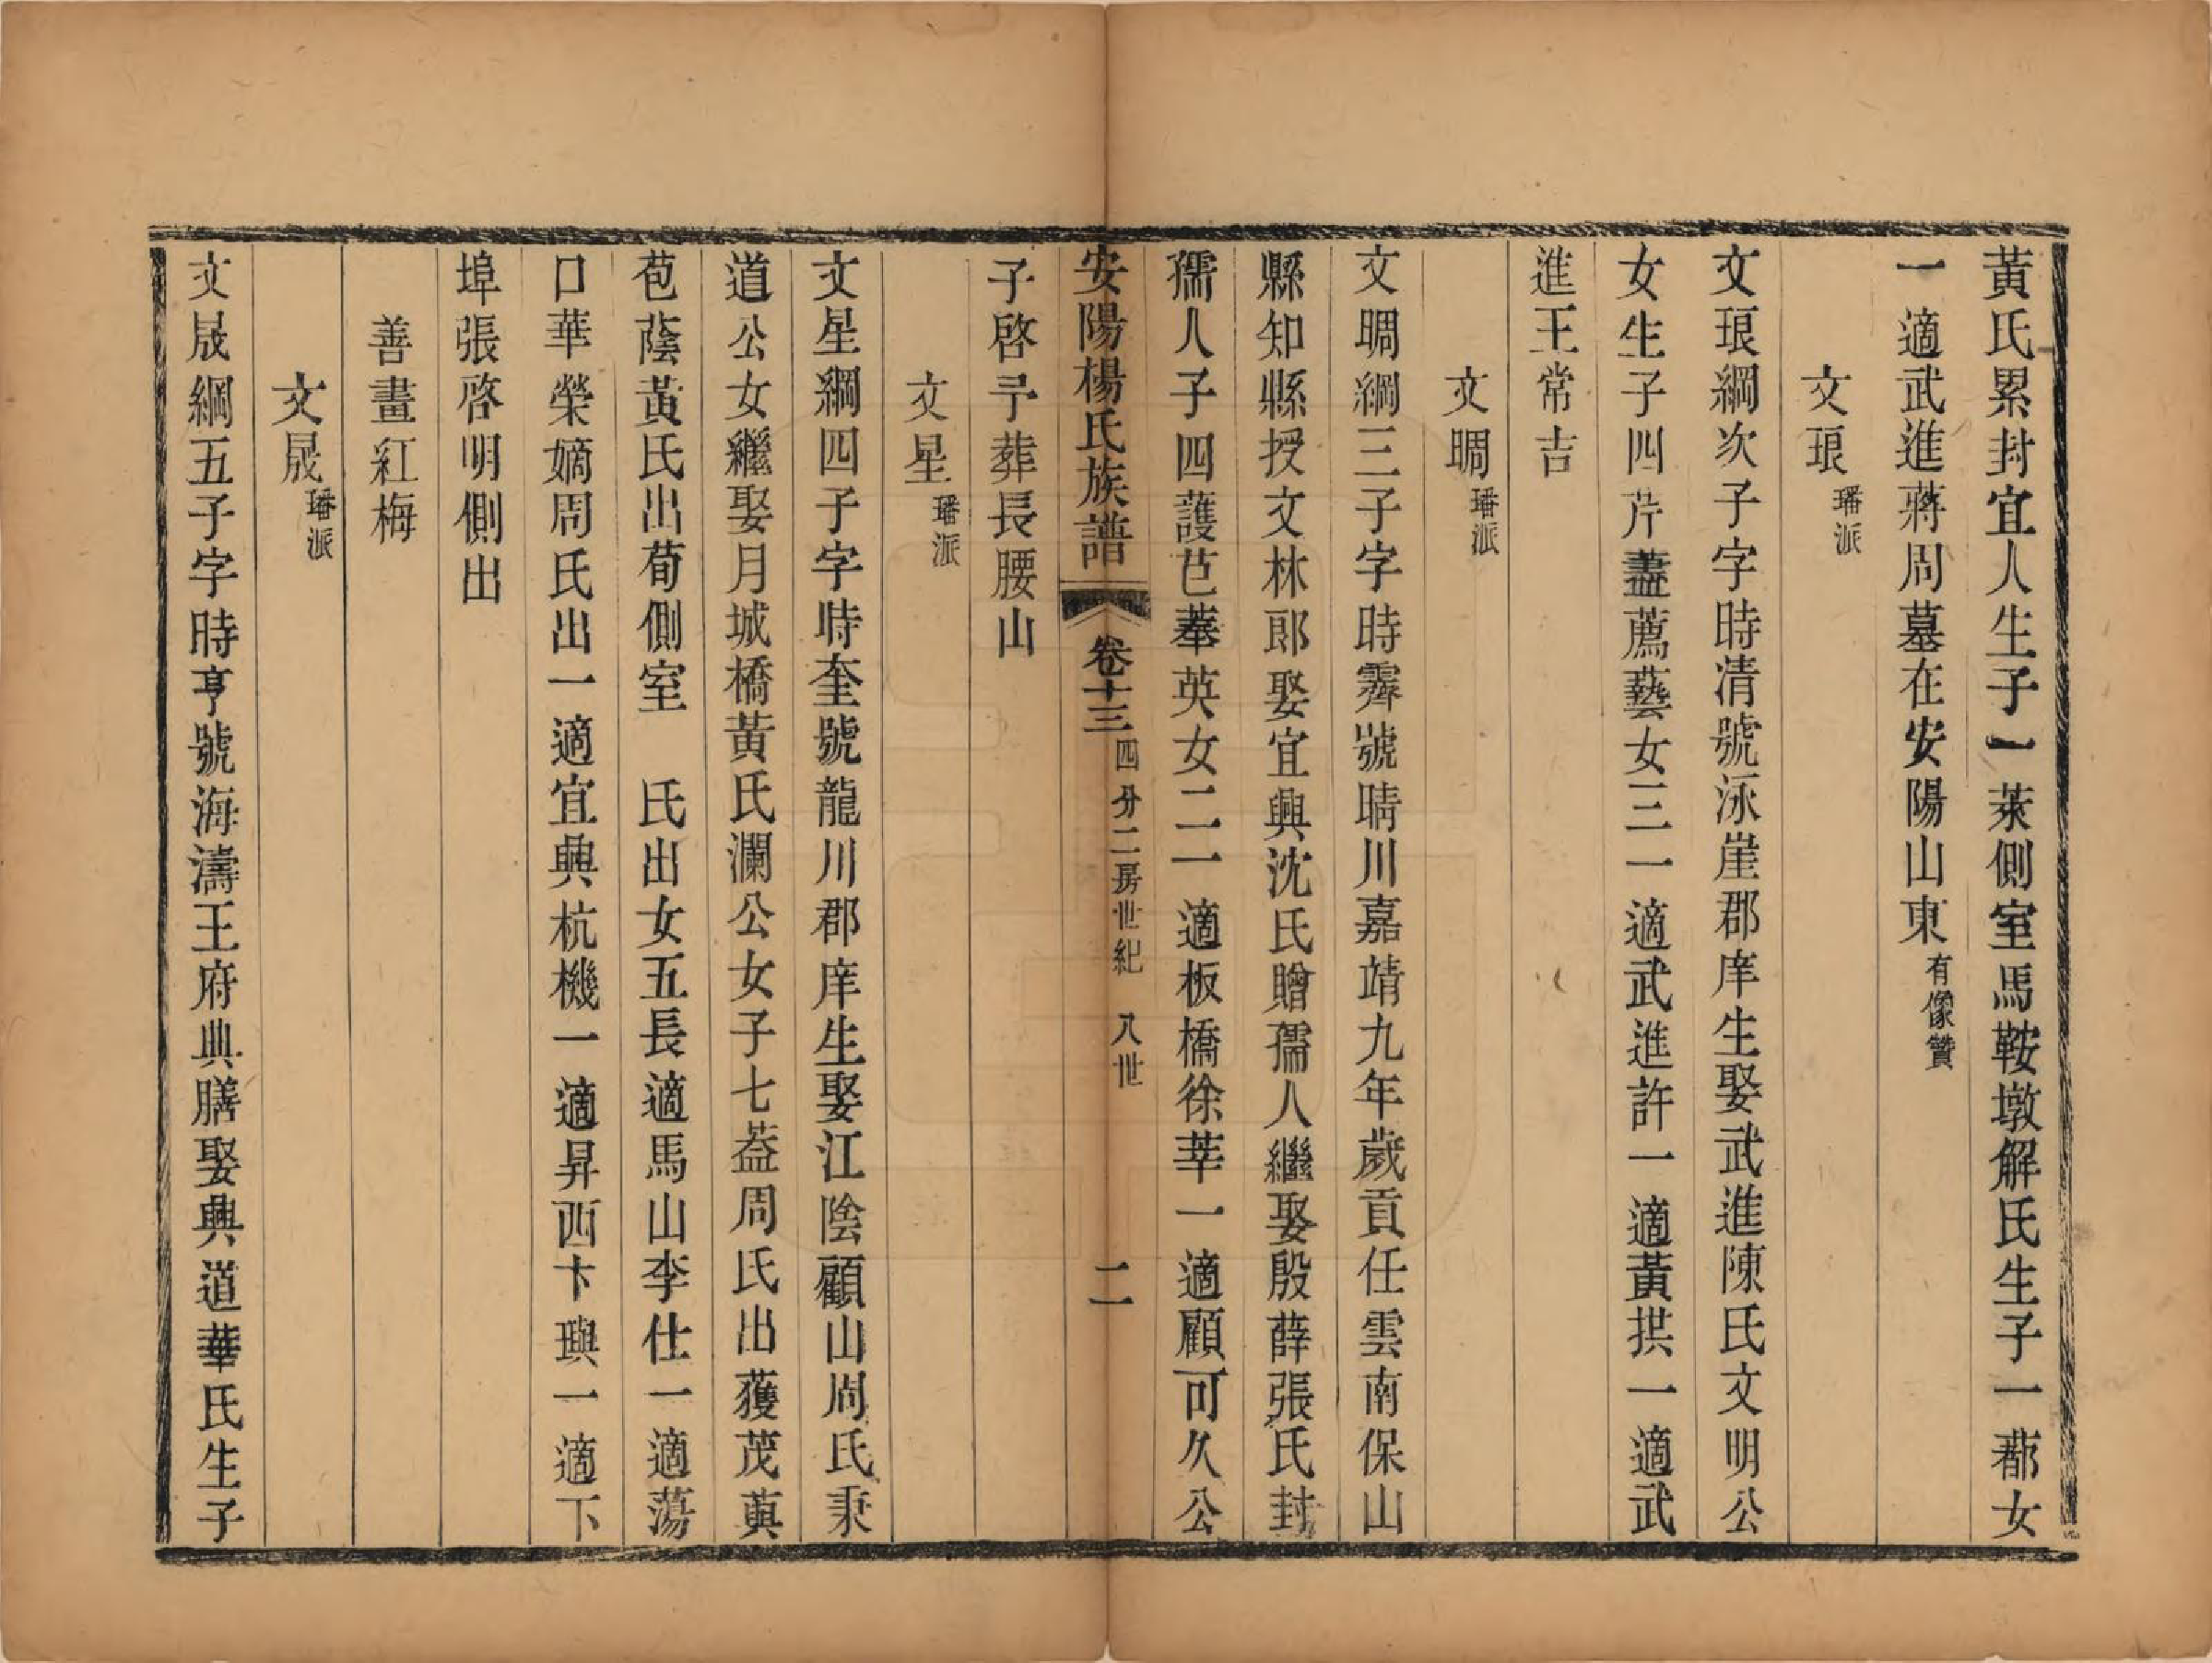 黃氏累封宜人生子一萊側室馬鞍墩解氏生子一蔀女
一適武進蔣周墓在安陽山東有像贊
文琅璠派
文琅綱次子字時清號泳崖郡庠生娶武進陳氏文明公
女生子四芹藎薦藝女三一適武進許一適黃拱一適武
進王常吉
文䎋璠派
文䎋綱三子字時霽號晴川嘉靖九年歲貢任雲南保山
縣知縣授文林郎娶宜興沈氏贈孺人繼娶殷薛張氏封
孺人子四護芑菶英女二一適板橋徐莘一適顧可久公
子啓予葬長腰山
安陽楊氏族譜 卷十三 四分二房世紀 八世 二
文星璠派
文星綱四子字時奎號龍川郡庠生娶江陰顧山周氏秉
道公女繼娶月城橋黃氏瀾公女子七葢周氏出蒦茂蓂
苞蔭黃氏出荀側室 氏出女五長適馬山李仕一適蕩
口華榮嫡周氏出一適宜興杭機一適昇西卞璵一適下
埠張啓明側出
善畫紅梅
文晟璠派
文晟綱五子字時亨號海濤王府典膳娶興道華氏生子